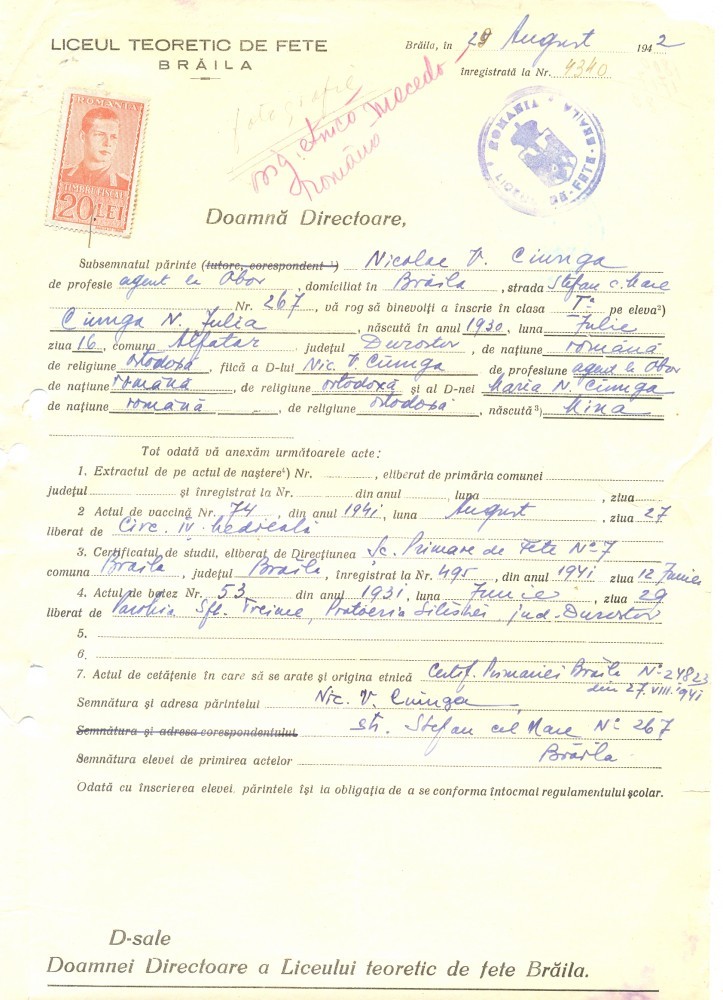 LICEUL TEORETIC DE FETE
BRĂILA
Brăila, în 29 August 1942
înregistrată la Nr. 4340
fotografie
orig. etnică macedo
română
ROMANIA
TIMBRU FISCAL
20 LEI
ROMANIA • BRAILA • LICEUL DE FETE
Doamnă Directoare,
Subsemnatul părinte (tutore, corespondent ¹) Nicolae V. Ciunga
de profesie agent la Obor, domiciliat în Brăila, strada Ștefan c. Mare
Nr. 267, vă rog să binevoiți a înscrie în clasa I a pe eleva²)
Ciunga N. Iulia, născută în anul 1930, luna Iulie
ziua 16, comuna Alfatar județul Durostor, de națiune română
de religiune ortodoxă, fiică a D-lui Nic. V. Ciunga de profesiune agent la Obor
de națiune română, de religiune ortodoxă și al D-nei Maria N. Ciunga
de națiune română, de religiune ortodoxă, născută³) Mina
Tot odată vă anexăm următoarele acte:
1. Extractul de pe actul de naștere⁴) Nr. , eliberat de primăria comunei
județul și înregistrat la Nr. din anul , luna , ziua
2 Actul de vaccină Nr. 74, din anul 1941, luna August, ziua 27
liberat de Circ. IV. Medicală
3. Certificatul de studii, eliberat de Direcțiunea Șc. Primare de Fete No 7
comuna Brăila, județul Brăila, înregistrat la Nr. 495, din anul 1941 ziua 12 Iunie
4. Actul de botez Nr. 53 din anul 1931, luna Iunie, ziua 29
liberat de Parohia Sft. Treime, Protoeria Silistrei, jud. Durostor
5.
6.
7. Actul de cetățenie în care să se arate și origina etnică Certif. Primăriei Brăila No 24823
din 27.VIII.1941
Semnătura și adresa părintelui Nic. V. Ciunga
Semnătura și adresa corespondentului str. Stefan cel Mare No 267
Semnătura elevei de primirea actelor Brăila
Odată cu înscrierea elevei, părintele își ia obligația de a se conforma întocmai regulamentului școlar.
D-sale
Doamnei Directoare a Liceului teoretic de fete Brăila.